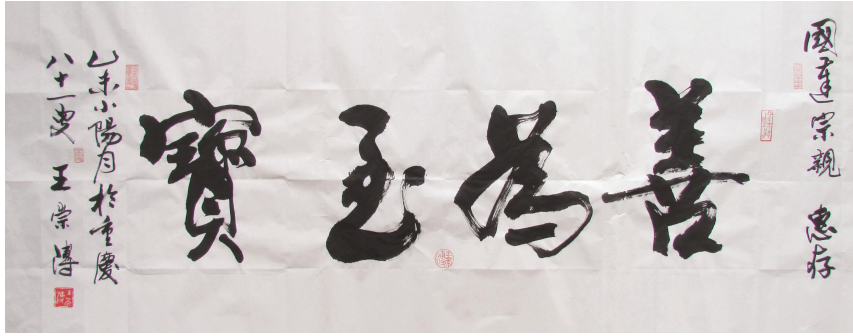 國達宗親 惠存
善為至寶
乙未小陽月於重慶
八十一叟 王崇溥